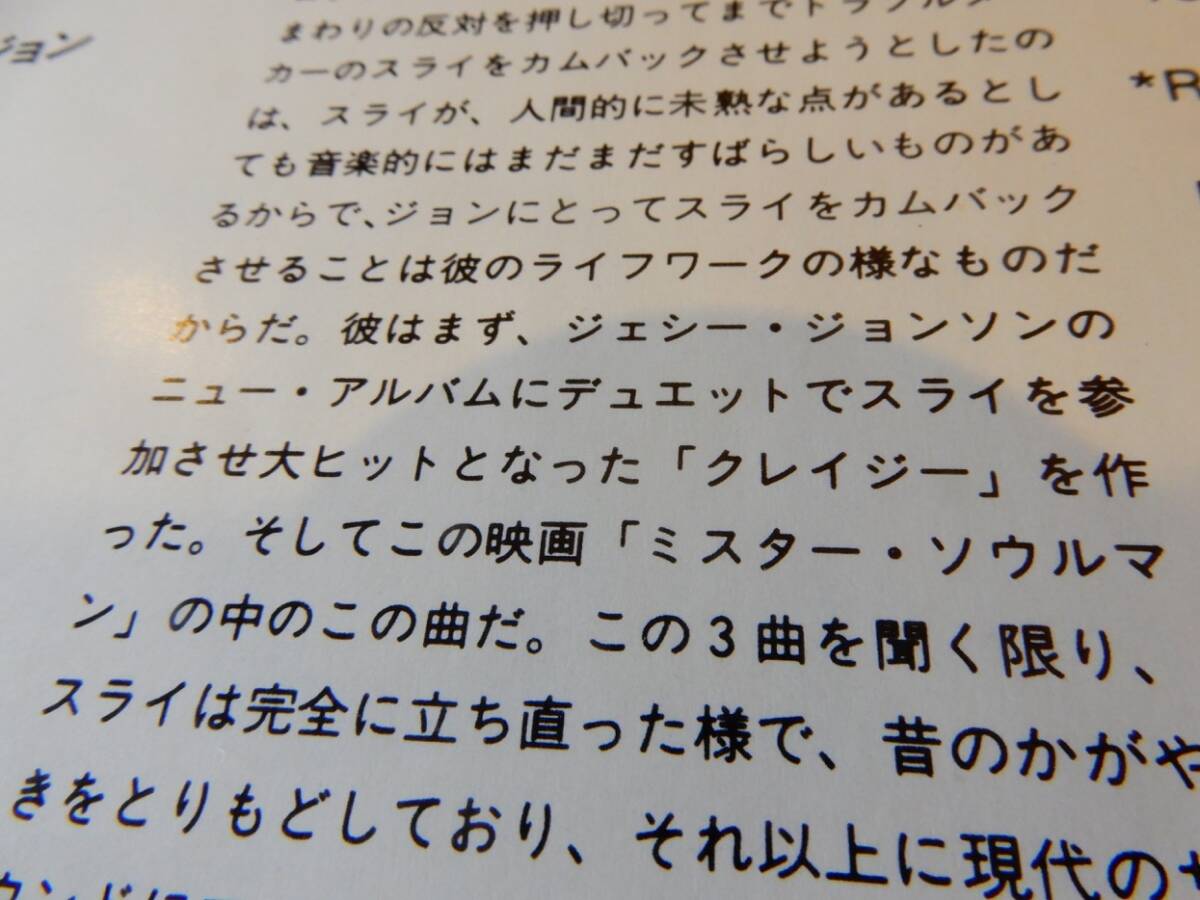 ジョン
まわりの反対を押し切ってまでトラブルメー
カーのスライをカムバックさせようとしたの
は、スライが、人間的に未熟な点があるとし
ても音楽的にはまだまだすばらしいものがあ
るからで、ジョンにとってスライをカムバック
させることは彼のライフワークの様なものだ
からだ。彼はまず、ジェシー・ジョンソンの
ニュー・アルバムにデュエットでスライを参
加させ大ヒットとなった「クレイジー」を作
った。そしてこの映画「ミスター・ソウルマ
ン」の中のこの曲だ。この3曲を聞く限り、
スライは完全に立ち直った様で、昔のかがや
きをとりもどしており、それ以上に現代のサ
ウンドに
*R